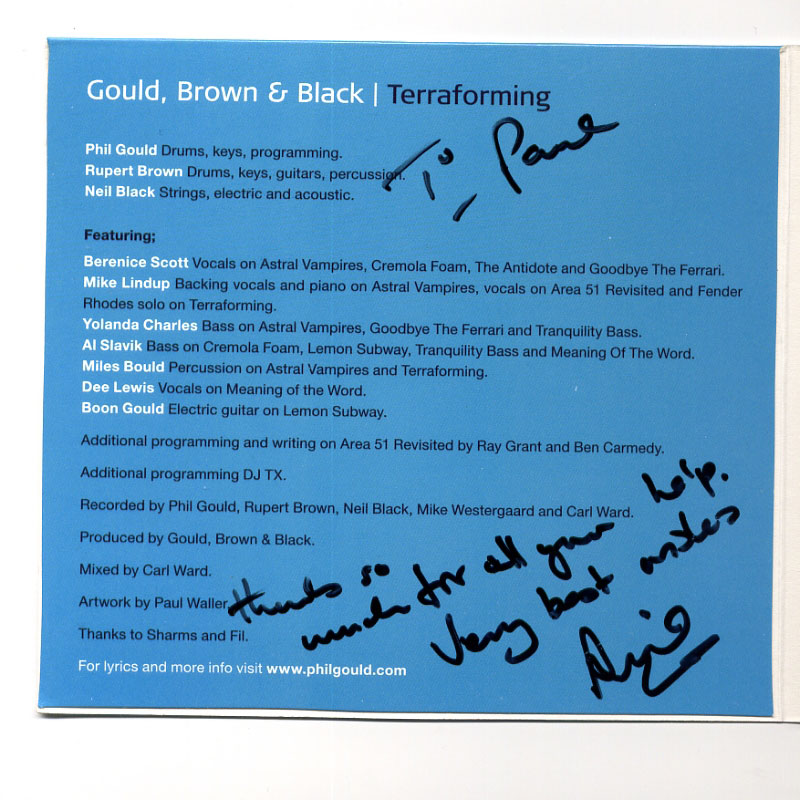 Gould, Brown & Black | Terraforming
To Paul
Phil Gould Drums, keys, programming.
Rupert Brown Drums, keys, guitars, percussion.
Neil Black Strings, electric and acoustic.
Featuring;
Berenice Scott Vocals on Astral Vampires, Cremola Foam, The Antidote and Goodbye The Ferrari.
Mike Lindup Backing vocals and piano on Astral Vampires, vocals on Area 51 Revisited and Fender
Rhodes solo on Terraforming.
Yolanda Charles Bass on Astral Vampires, Goodbye The Ferrari and Tranquility Bass.
Al Slavik Bass on Cremola Foam, Lemon Subway, Tranquility Bass and Meaning Of The Word.
Miles Bould Percussion on Astral Vampires and Terraforming.
Dee Lewis Vocals on Meaning of the Word.
Boon Gould Electric guitar on Lemon Subway.
Additional programming and writing on Area 51 Revisited by Ray Grant and Ben Carmedy.
Additional programming DJ TX.
Recorded by Phil Gould, Rupert Brown, Neil Black, Mike Westergaard and Carl Ward.
Produced by Gould, Brown & Black.
Mixed by Carl Ward.
Artwork by Paul Waller
Thanks to Sharms and Fil.
For lyrics and more info visit www.philgould.com
thanks so
much for all your help.
Very best wishes
Phil